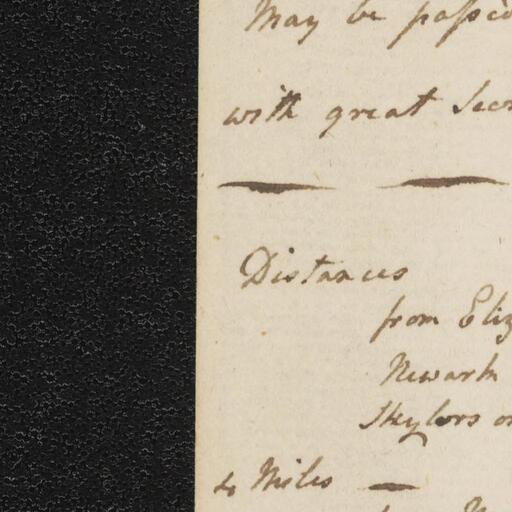 May be passed
with great Secr
Distances
from Eliz
Newark
Skylors on
4 Miles —